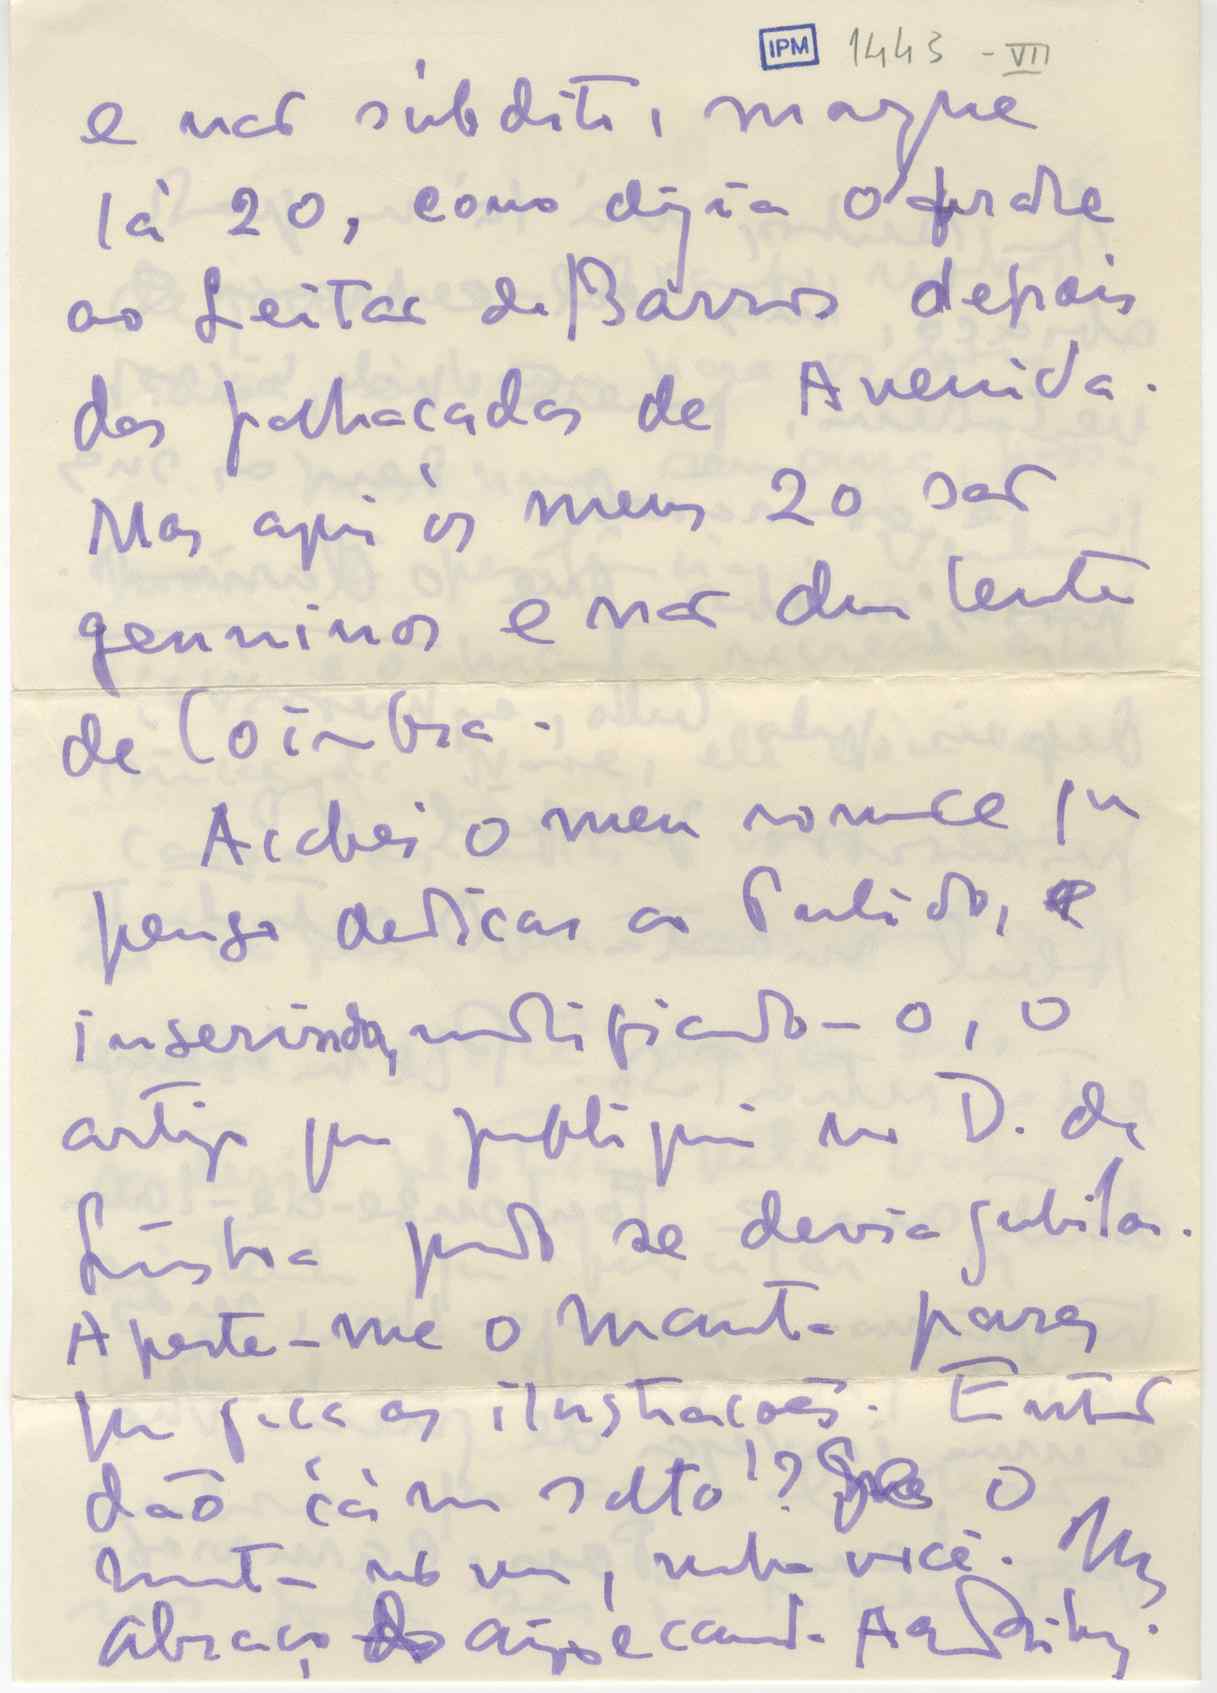 IPM 1443 - VII
e não súbdito, mazue
lá 20, como dizia o frade
ao Leitão de Barros depois
das palhaçadas de Avenida.
Mas aqui os meus 20 são
genuinos e não dum lente
de Coimbra.
Acabei o meu romance qu
penso dedicar ao Pulido, e
inserindo, modificando-o, o
artigo que publiquei no D. de
Lisboa quando se devia jubilar.
Aperte-me o Manta para
que faça as ilustrações. Então
dão cá um salto!? Se o
Manta não vem, venha você. Um
abraço do amº e camda